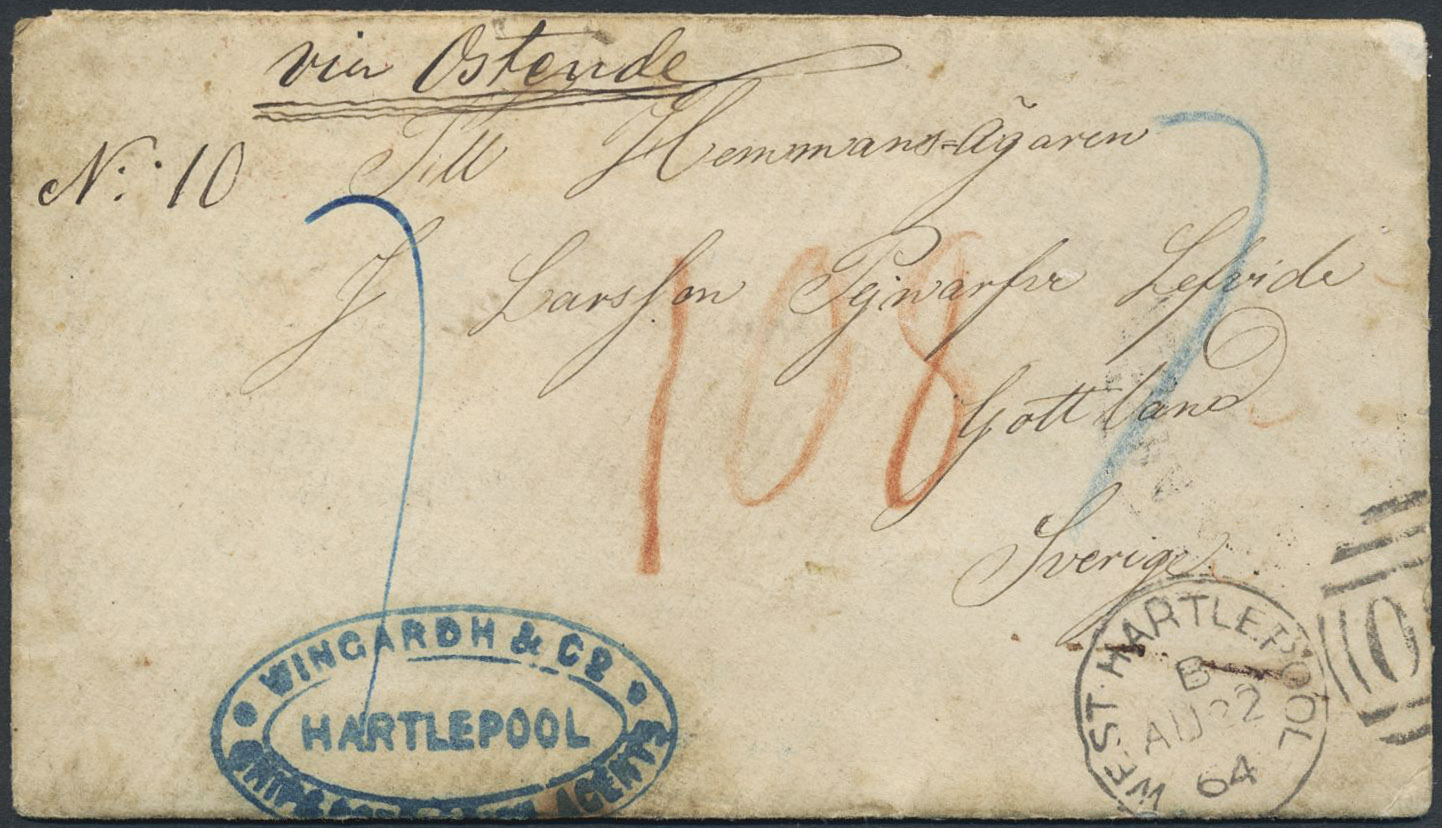 via Ostende
N: 10
Till Hemmans=Ägaren
J Larsson Lefvide
Gottland
Sverige
108
7
7
WINGARDH & Co
HARTLEPOOL
AGENTS
WEST·HARTLEPOOL
B
AU 22
64